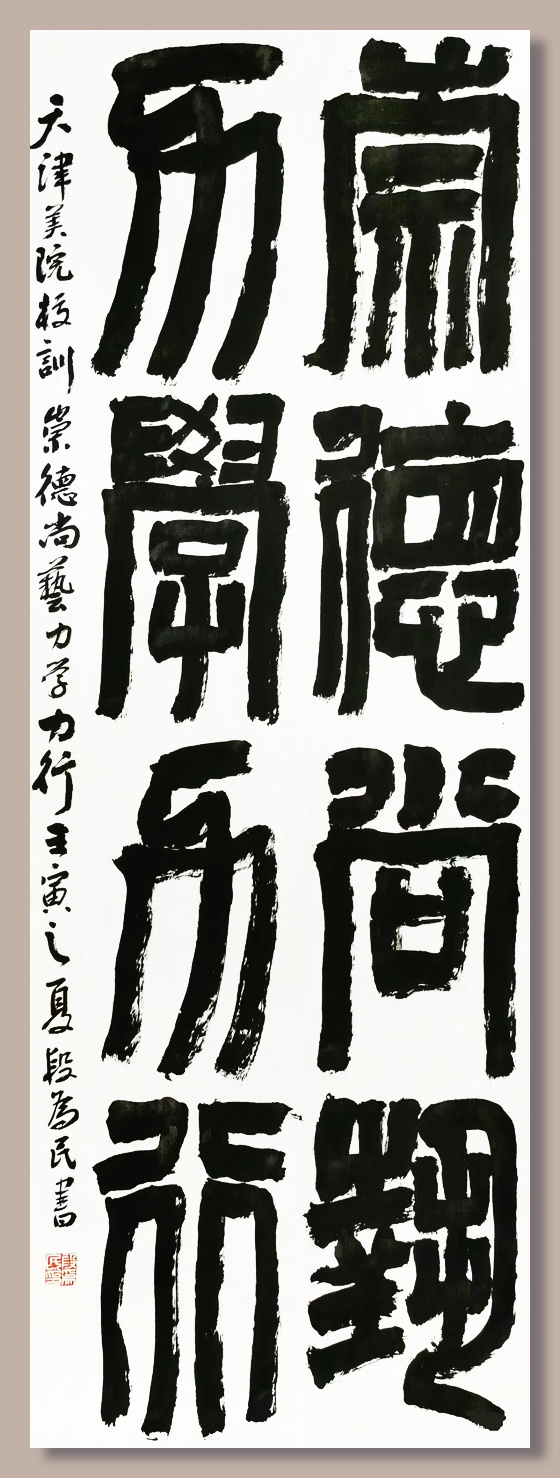 崇德尚埶
力學力行
天津美院校訓崇德尚藝力学力行壬寅之夏段為民書